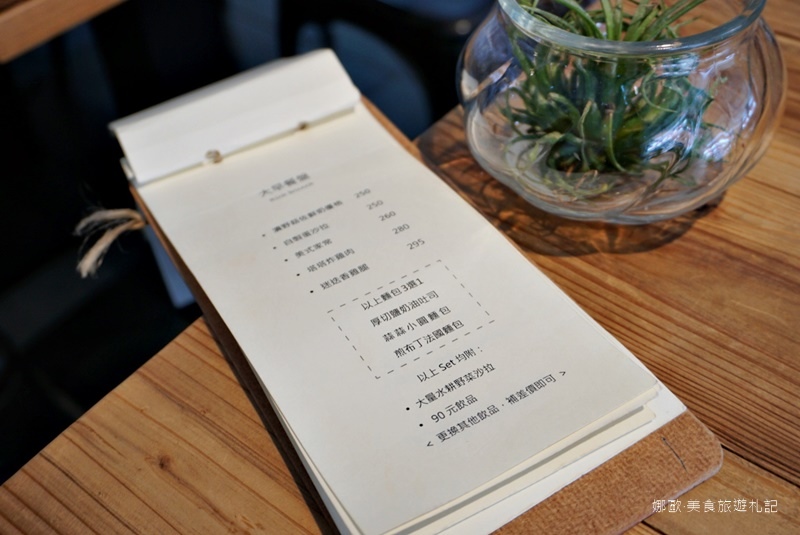 大早餐盤
自製蛋沙拉 250
美式家常 260
塔塔炸雞肉 280
迷迭香雞腿 295
250
以上麵包3選1
厚切鹽奶油吐司
蒜蒜小圓麵包
煎布丁法國麵包
以上 Set 均附:
• 大量水耕野菜沙拉
• 90 元飲品
< 更換其他飲品,補差價即可 >
娜歐·美食旅遊札記